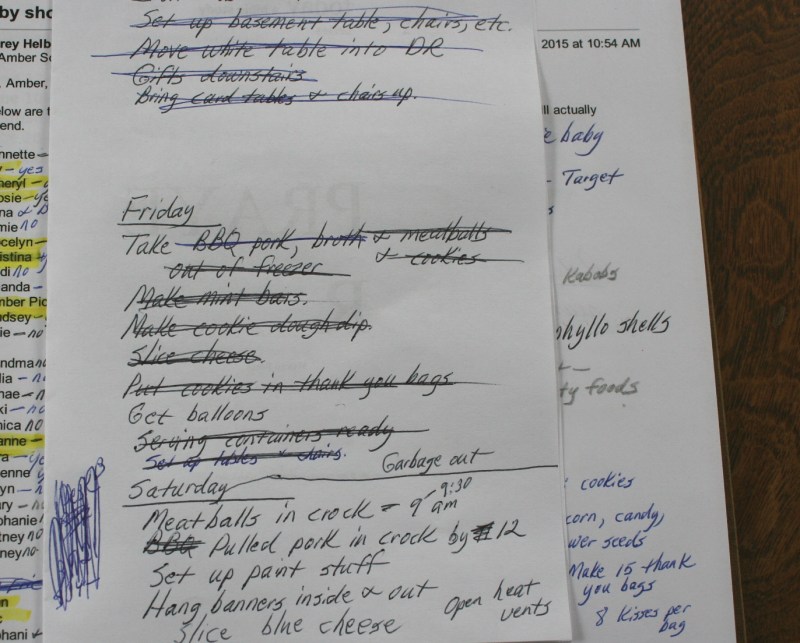 by sho
rey Helb
2015 at 10:54 AM
Amber
, Amber,
elow are t
ll actually
end.
Set up basement table, chairs, etc.
Move white table into DR
Gifts downstairs
Bring card tables & chairs up.
Friday
Take BBQ pork, broth & meatballs
& cookies
out of freezer
Make mint bars.
Make cookie dough dip.
Slice cheese.
Put cookies in thank you bags
Get balloons
Serving containers ready
Set up tables & chairs.
Garbage out
Saturday
Meatballs in crock - 9 am
9:30
BBQ Pulled pork in crock by 12
Set up paint stuff
Hang banners inside & out
Open heat
vents
Slice blue cheese
nnette -
- yes
heryl -
osie - ye
na &
mie no
celyn -
istina
di no
anda -
mber Pic
dsey -
ie - no
ndma no
lia - n
nae - n
ki - no
nica no
anne -
ra - ye
enne y
yn - n
ry - no
phanie
tney no
ney no
n
phani
e baby
- Target
s
Kababs
phyllo shells
ty foods
cookies
corn, candy,
wer seeds
Make 15 thank
you bags
8 Kisses per
bag